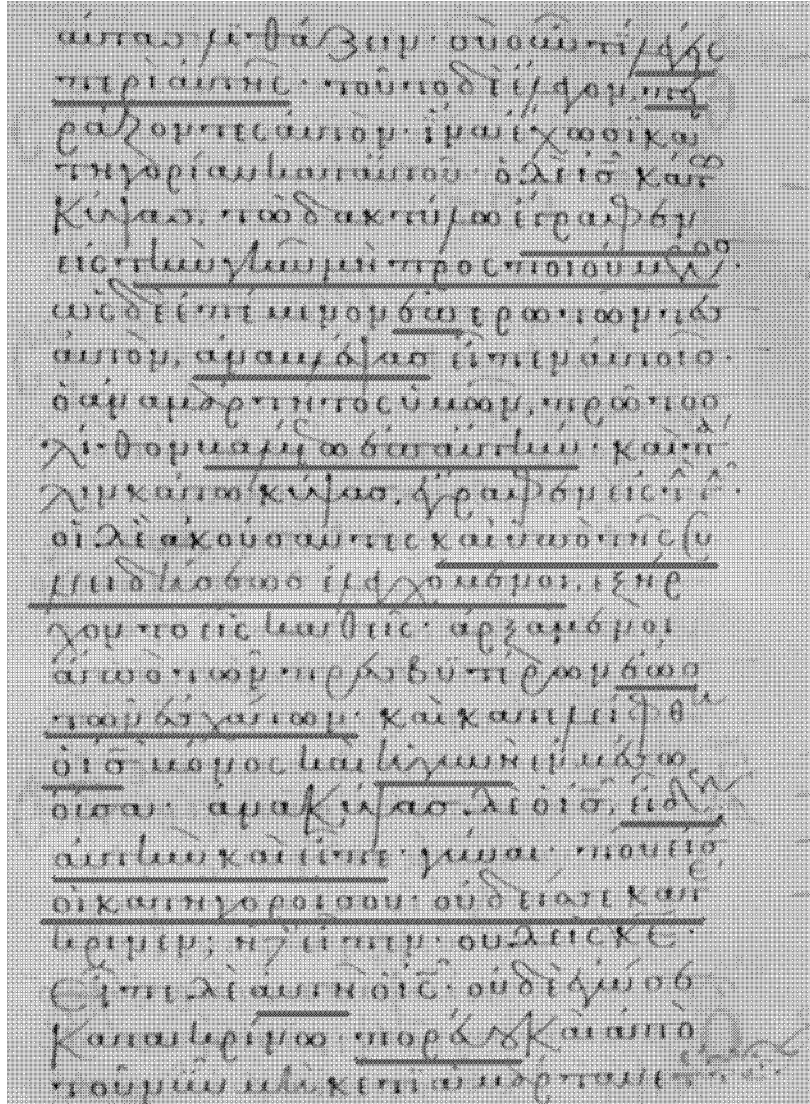 αὐτὰς λιθάζειν· σὺ οὖν τί λέγεις
περὶ αὐτῆς· τοῦτο δὲ ἔλεγον, πει
ράζοντες αὐτόν· ἵνα ἔχωσι κα
τηγορίαν κατ' αὐτοῦ· ὁ δὲ ις κάτω
κύψας, τῷ δακτύλῳ ἔγραφεν
εἰς τὴν γῆν μὴ προσποιούμενος·
ὡς δὲ ἐπέμενον ἐρωτῶντες
αὐτὸν, ἀνακύψας εἶπεν αὐτοῖς·
ὁ ἀναμάρτητος ὑμῶν, πρῶτος
λίθον βαλέτω ἐπ' αὐτήν· καὶ πά
λιν κάτω κύψας, ἔγραφεν εἰς τ γ·
οἱ δὲ ἀκούσαντες καὶ ὑπὸ τῆς συ
νειδήσεως ἐλεγχόμενοι, ἐξήρ
χοντο εἷς καθεῖς· ἀρξάμενοι
ἀπὸ τῶν πρεσβυτέρων ἕως
τῶν ἐσχάτων· καὶ κατελείφθη
ὁ ις μόνος καὶ ἡ γυνὴ ἐν μέσω
οὖσα· ἀνακύψας δὲ ὁ ις, εἶδεν
αὐτὴν καὶ εἶπε· γύναι· ποῦ εἰσ
οἱ κατήγοροί σου· οὐδείς σε κατέ
κρινεν; ἡ δ εἶπεν· οὐδεὶς κε·
Εἶπε δὲ αὐτῇ ὁ ις· οὐδὲ ἐγώ σε
κατακρίνω· πορεύου καὶ ἀπὸ
τοῦ νῦν μηκέτι ἁμάρτανε